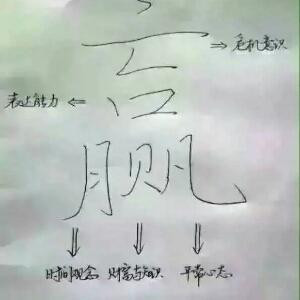 赢
⇒危机意识
表达能力⇐
时间观念 财富与知识 平常心态